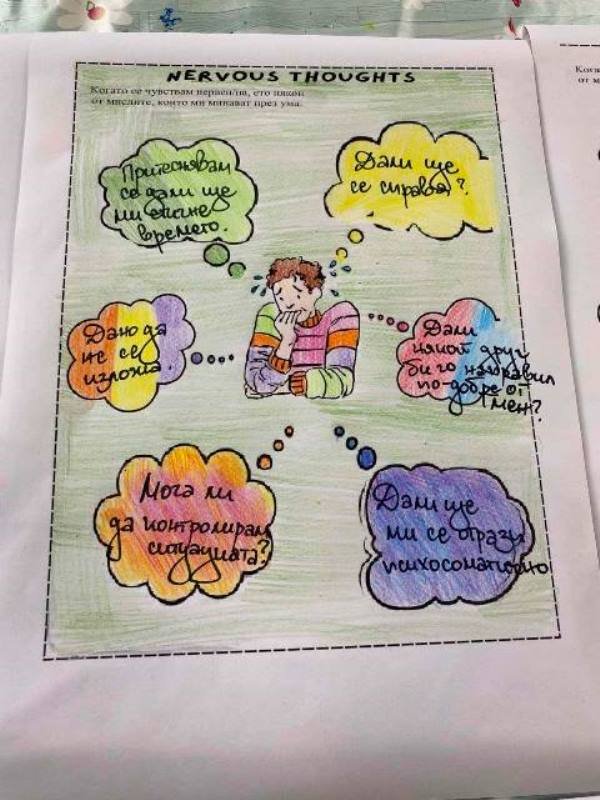 NERVOUS THOUGHTS
Когато се чувствам нервен/на, ето някои
от мислите, които ми минават през ума:
Притеснявам
се дали ще
ми стигне
времето.
Дали ще
се справя?
Дано да
не се
изложа.
Дали
някой друг
би го направил
по-добре от
мен?
Мога ли
да контролирам
ситуацията?
Дали ще
ми се отрази
психосоматично